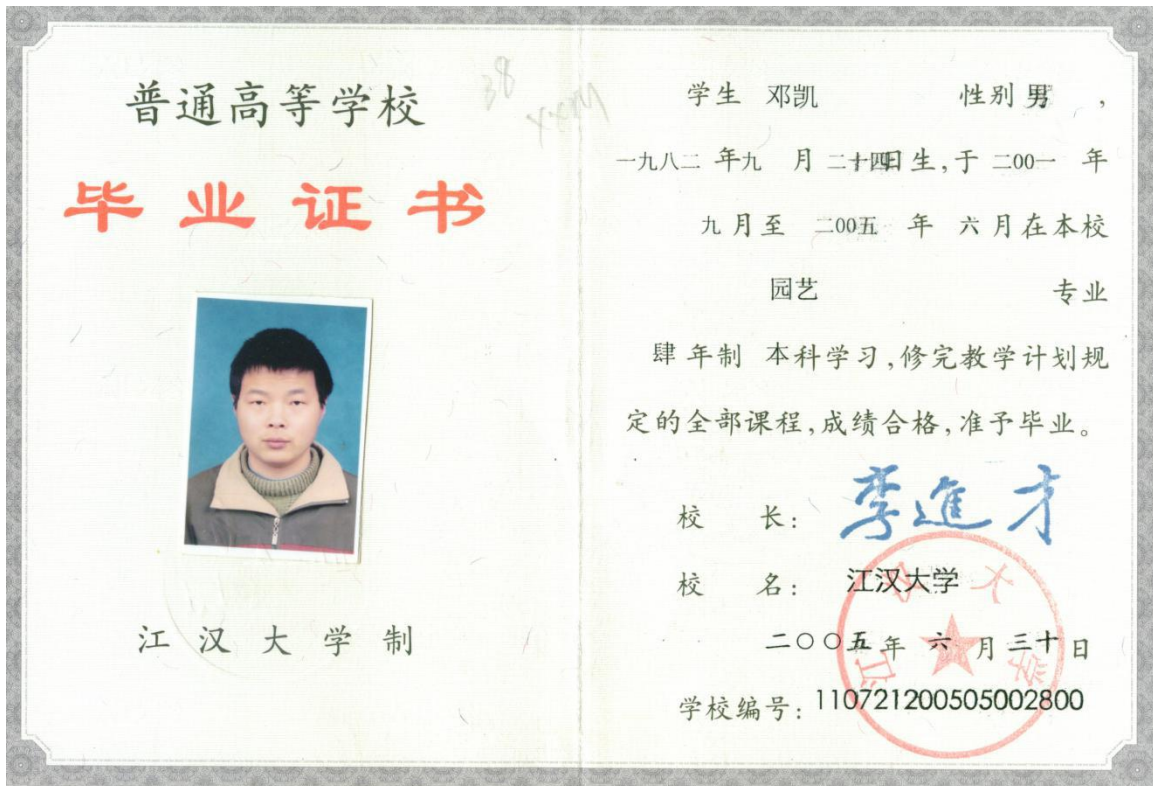 普通高等学校
毕业证书
江汉大学制
学生 邓凯 性别 男 ,
一九八二 年九 月 二十四日生,于 二00一 年
九月至 二00五 年 六月在本校
园艺 专业
肆 年制 本科学习,修完教学计划规
定的全部课程,成绩合格,准予毕业。
校 长: 李進才
校 名: 江汉大学
二〇〇五年 六 月 三十日
学校编号: 110721200505002800
江汉大学